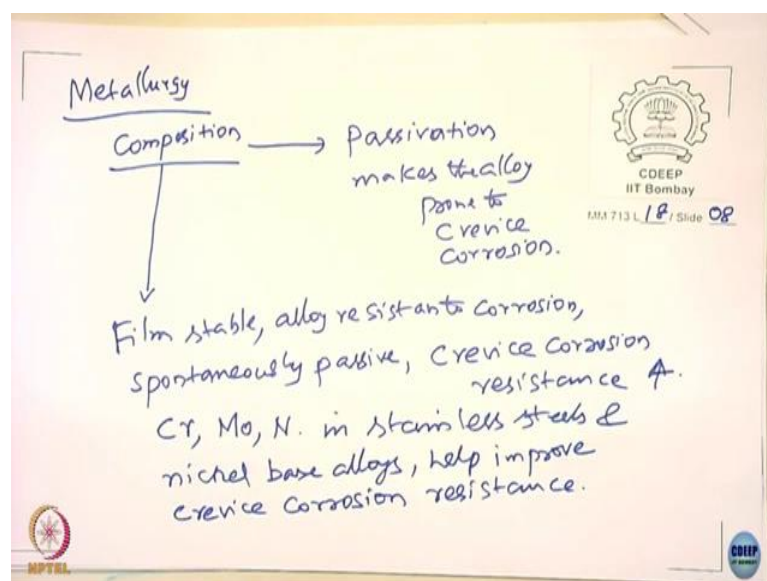 Metallurgy
Composition → Passivation
makes the alloy
prone to
crevice
corrosion.
CDEEP
IIT Bombay
MM 713 L 18 / Slide 08
Film stable, alloy resistant to corrosion,
spontaneously passive, crevice corrosion
resistance ↑.
Cr, Mo, N. in stainless steels &
nickel base alloys, help improve
crevice corrosion resistance.
NPTEL
CDEEP
IIT BOMBAY